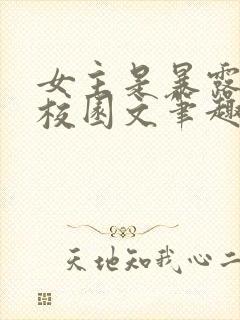 女主是暴露
校园文笔趣
天地知我心二